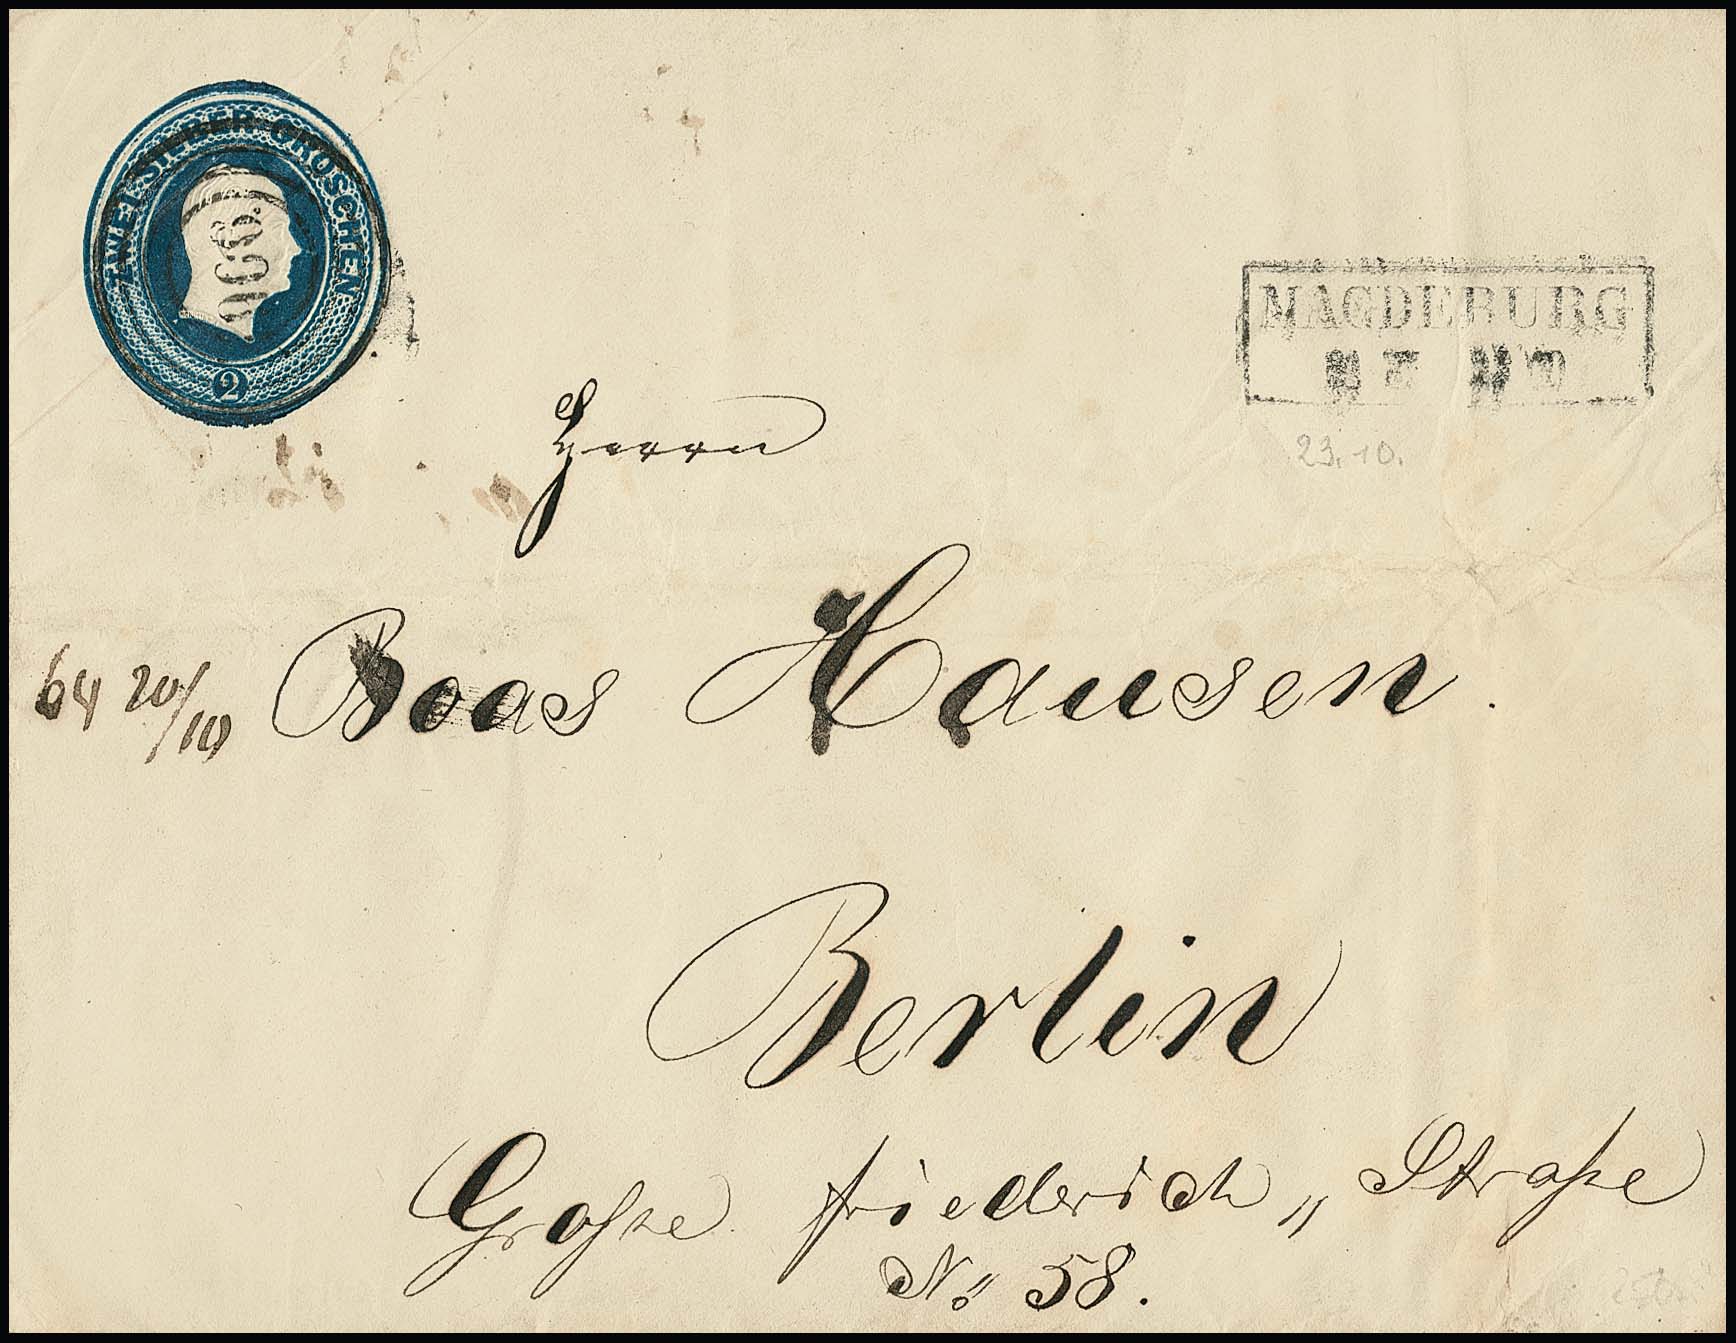 ZWEI SILBER GROSCHEN.
2
MAGDEBURG
23.10.
Herrn
Boas Hausen.
64 20/10
Berlin
Große friederich„ Straße
No„ 58.